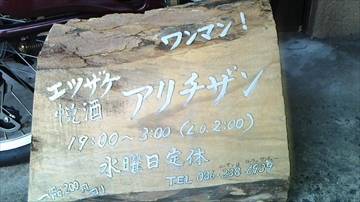 ワンマン!
エツザケ
悦酒 アリチザン
19:00~3:00 (L.O.2:00)
水曜日定休
TEL